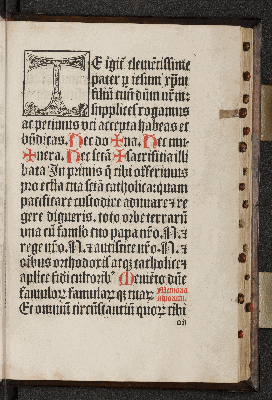 TE igit᷑ clementissime
pater ꝑ iesum xp̄m
filiū tuū dn̄m nr̄m:
supplices rogamus
ac petimus vti accepta habeas et
bn̄dicas. Hec do✠na. Hec mu-
✠nera. Hec sctā ✠ sacrificia illi
bata In primis q̄ tibi offerimus
pro ecc̄ia tua sctā catholica: quam
pacificare custodire adunare ⁊ re
gere digneris. toto orbe terrarū
vna cū famlo tuo papa nr̄o. N. ⁊
rege nr̄o. N. ⁊ antistite nr̄o. N. ⁊
oībus orthodoxis atqꝫ catholice ⁊
aplice fidei cultoribꝰ. Memēto dn̄e
famuloꝝ famularūqꝫ tuaꝝ
Et omniū circūstantiū quoꝝ tibi